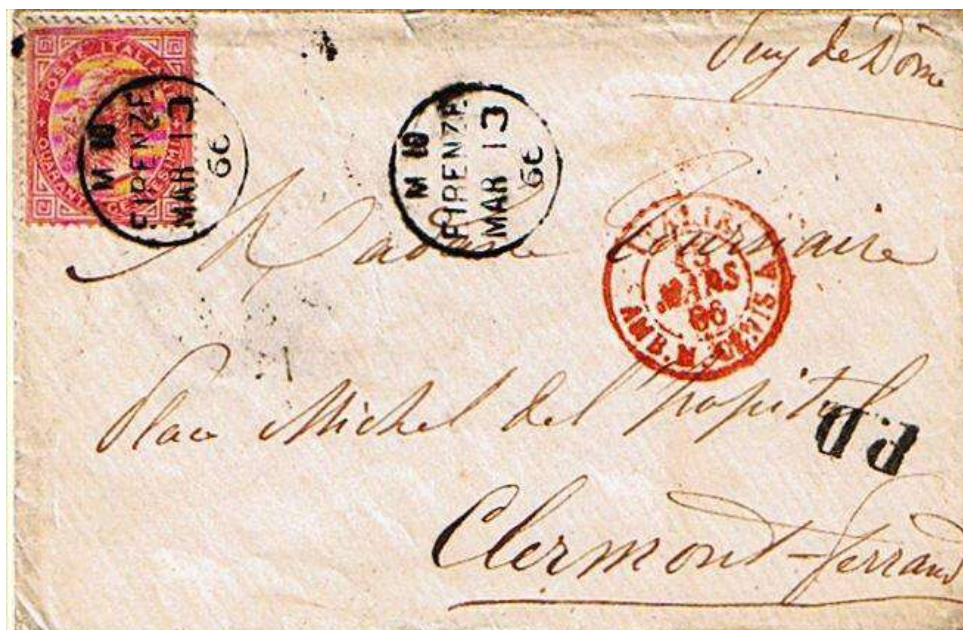 Puy de Dôme
POSTE ITALIANE
QUARANTA CENTESIMI
M 10
FIRENZE
MAR 13
66
M 10
FIRENZE
MAR 13
66
Madame Fournaire
ITALIE
MARS
66
AMB. M. CENIS A
Place Michel de l'hopital
P.D
Clermont-ferrand